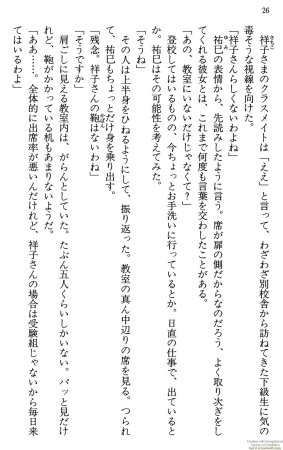 26
祥子さまのクラスメイトは「ええ」と言って、わざわざ別校舎から訪ねてきた下級生に気の
毒そうな視線を向けた。
「祥子さんらしくないわよね」
祐巳の表情から、先読みしたように言う。席が扉の側だからなのだろう、よく取り次ぎをし
てくれる彼女とは、これまで何度も言葉を交わしたことがある。
「あの、教室にいないだけじゃなくて？」
登校してはいるものの、今ちょっとお手洗いに行っているとか。日直の仕事で、出ていると
か。祐巳はその可能性を考えてみた。
「そうね」
その人は上半身をひねるようにして、振り返った。教室の真ん中辺りの席を見る。つられ
て、祐巳もちょっとだけ身を乗り出す。
「残念。祥子さんの鞄はないわね」
「そうですか」
肩ごしに見える教室内は、がらんとしていた。たぶん五人くらいしかいない。パッと見だけ
れど、鞄がかかっている机もあまりないようだ。
「ああ……。全体的に出席率が悪いんだけれど、祥子さんの場合は受験組じゃないから毎日来
てはいるわよ」